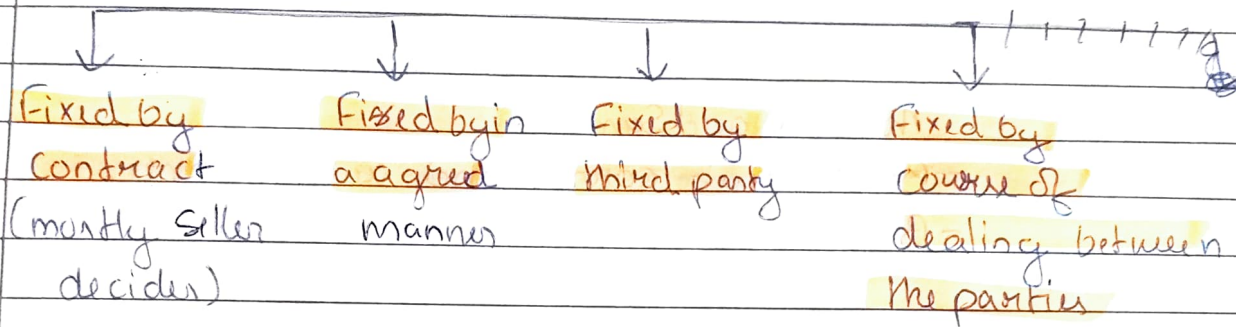 Fixed by
contract
(mostly seller
decides)
Fixed by in
a agred
manner
Fixed by
third party
Fixed by
course of
dealing between
the parties